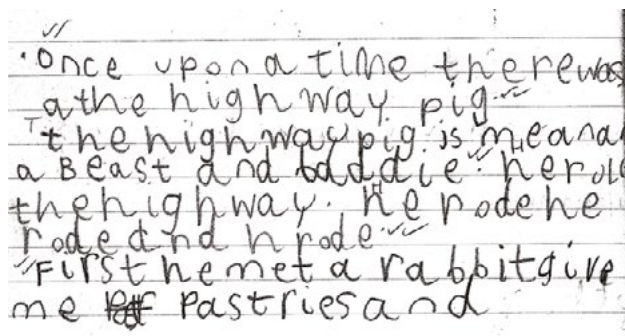 Once upon a time there was
a the high way pig
the high way pig is mean and
a Beast and baddie. he role
the high way. He rode he
rode and h rode
First he met a rabbit give
me pastries and